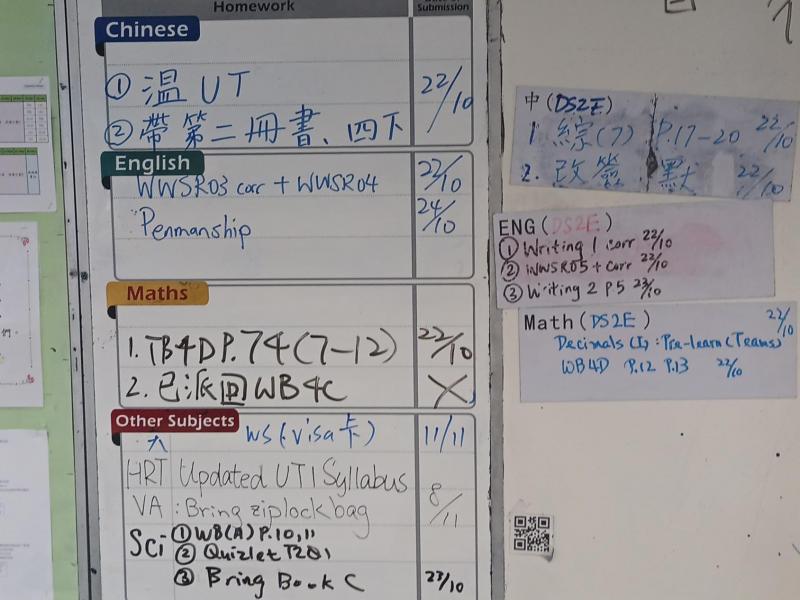 Homework
Submission
Chinese
① 溫 UT 22/10
② 帶第二冊書、四下
English
WWSR03 corr + WWSR04 22/10
Penmanship 24/10
Maths
1. TB4D P.74 (7-12) 22/10
2. 已派回 WB4C X
Other Subjects
WS (visa卡) 11/11
HRT Updated UT1 Syllabus
VA : Bring ziplock bag 8/11
Sci ① WB(A) P.10, 11
② Quizlet
③ Bring Book C 23/10
中 (DS2E)
1. 綜(7) P.17-20 22/10
2. 改簽 默 22/10
ENG (DS2E)
① Writing 1 corr 22/10
② WWSR05 + corr 22/10
③ Writing 2 P5 23/10
Math (DS2E) 22/10
Decimals (I) : Pre-learn (Teams)
WB4D P.12 P.13 22/10